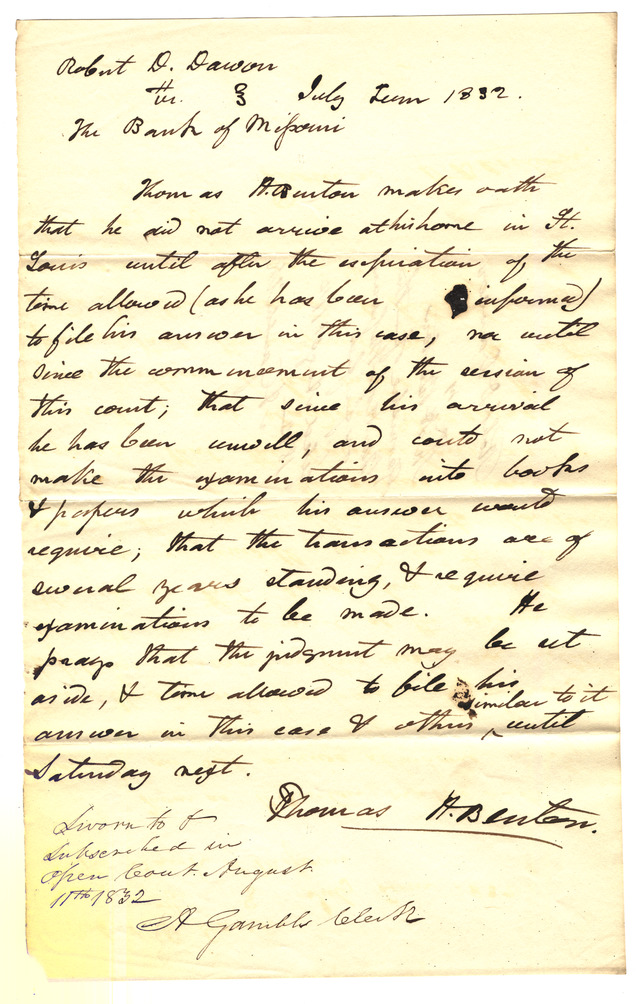 Robert D. Dawson
vs. } July Term 1832.
The Bank of Missouri
Thomas H. Benton makes oath
that he did not arrive at his home in St.
Louis until after the expiration of the
time allowed (as he has been informed)
to file his answer in this case, nor until
since the commencement of the session of
this court; that since his arrival
he has been unwell, and could not
make the examinations into books
& papers which his answer would
require; that the transactions are of
several years standing, & require
examinations to be made. He
prays that the judgment may be set
aside, & time allowed to file his
similar to it
answer in this case & others ^ until
Saturday next.
Thomas H. Benton.
Sworn to &
Subscribed in
open Court August
11th 1832
A Gamble Clerk